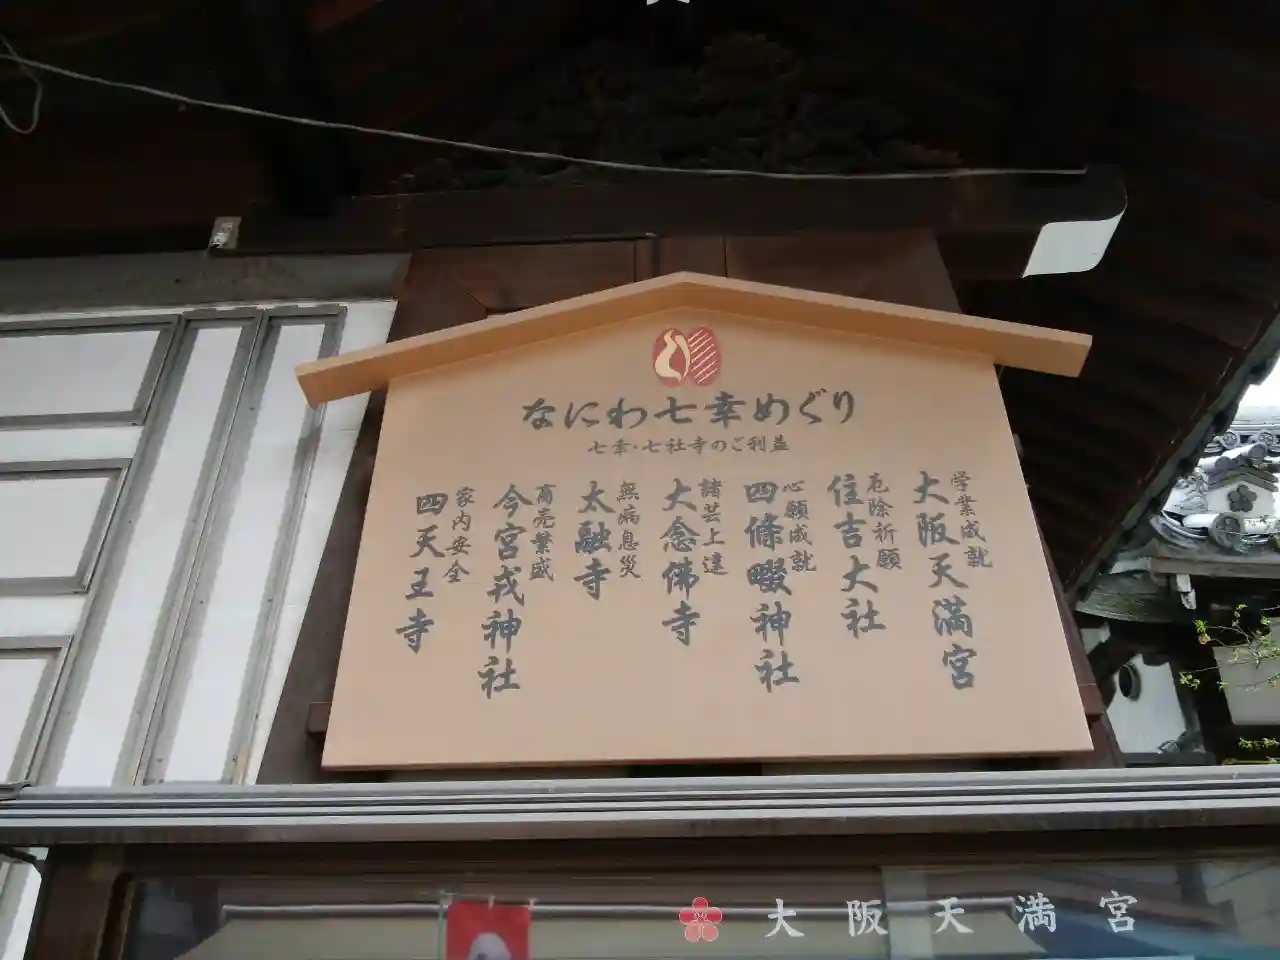 なにわ七幸めぐり
七幸・七社寺のご利益
学業成就
大阪天満宮
厄除祈願
住吉大社
心願成就
四條畷神社
諸芸上達
大念佛寺
無病息災
太融寺
商売繁盛
今宮戎神社
家内安全
四天王寺
大阪天満宮